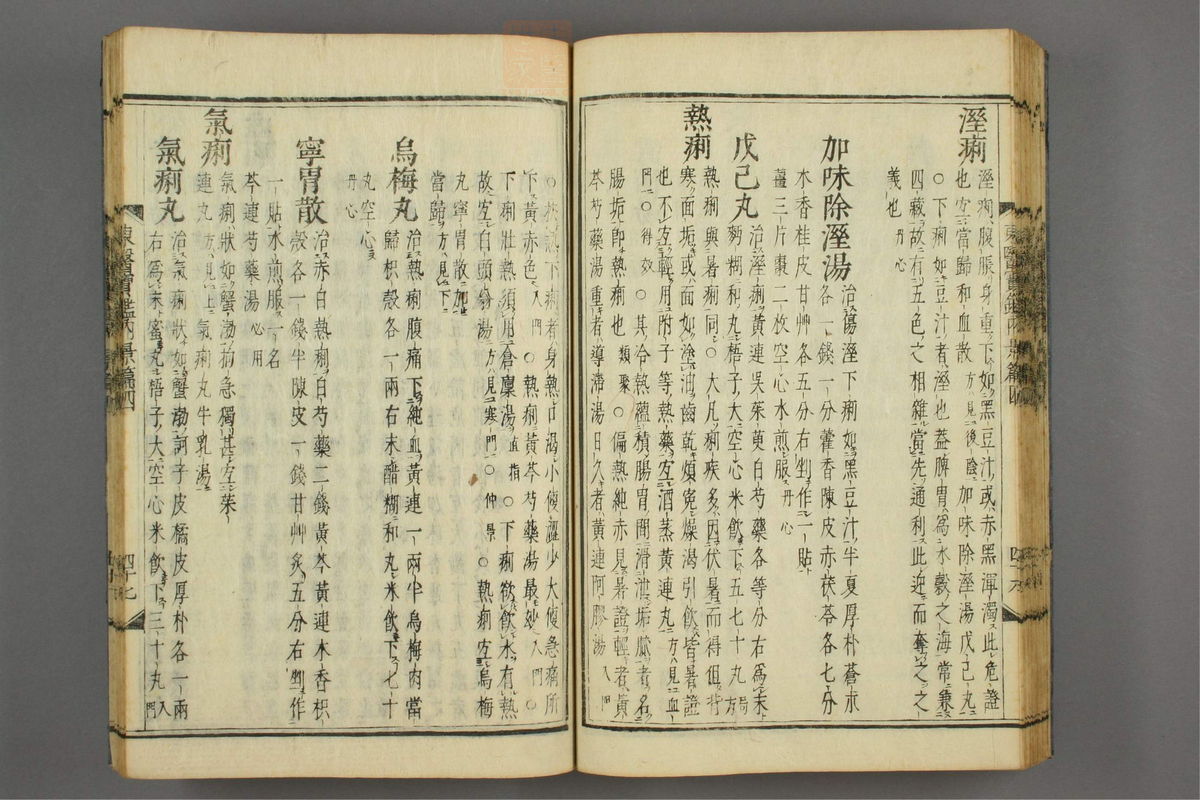 溼痢
溼痢腹脹身重下如黑豆汁或赤黑渾濁此危證
也宜當歸和血散方見後陰加味除溼湯戊己丸
○下痢如豆汁者溼也盖脾胃爲水穀之海常兼
四藏故有五色之相雜當先通利此迎而奪之之
義也丹心
加味除溼湯 治傷溼下痢如黑豆汁半夏厚朴蒼朮
各一錢一分藿香陳皮赤茯苓各七分
木香桂皮甘艸各五分右剉作一貼
薑三片棗二枚空心水煎服丹心
戊己丸 治溼痢黃連吳茱萸白芍藥各等分右爲末
麪糊和丸梧子大空心米飮下五七十丸局方
熱痢
熱痢與暑痢同○大凡痢疾多因伏暑而得徂背
寒面垢或面如塗油齒乾煩寃燥渴引飮皆暑證
也不宜輕用附子等熱藥宜酒蒸黃連丸方見血
門○得效○其冷熱蘊積腸胃間滑泄垢膩者名
腸垢卽熱痢也類聚○偏熱純赤見暑證輕者黃
芩芍藥湯重者導滯湯日久者黃連阿膠湯入門
○挾熱下痢者身熱口渴小便澁少大便急痛所
下黃赤色入門○熱痢黃芩芍藥湯最妙入門○
下痢壯熱須用倉廩湯直指○下痢欲飮水有熱
故宜白頭翁湯方見寒門○仲景○熱痢宜烏梅
丸寧胃散加
當歸方見下
烏梅丸 治熱痢腹痛下純血黃連一兩半烏梅肉當
歸枳殼各一兩右末醋糊和丸米飮下七十
丸空心
丹心
寧胃散 治赤白熱痢白芍藥二錢黃芩黃連木香枳
殼各一錢半陳皮一錢甘艸炙五分右剉作
一貼水煎服一名
芩連芍藥湯 心用
氣痢
氣痢狀如蟹渤拘急獨甚宜茱
連丸方見上氣痢丸牛乳湯
氣痢丸 治氣痢狀如蟹渤訶子皮橘皮厚朴各一兩
右爲末蜜丸梧子大空心米飮下三十丸入門
東醫寶鑑內景篇四
四十七